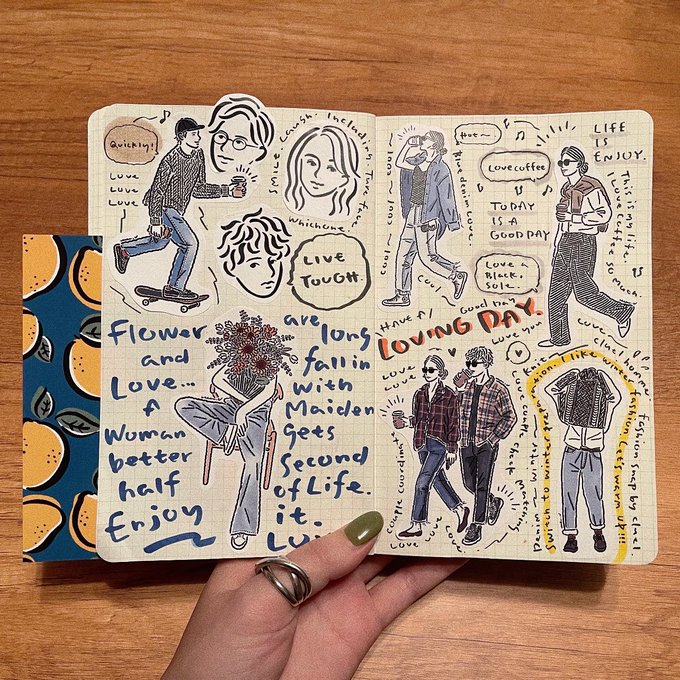 Quickly!
Love
Love
Love
Laugh. Including
Whichone.
LIVE
TOUGH.
Flower
and
Love...
A
Woman
better
half
Enjoy
are long
fall in
with
Maiden
gets
Second
of Life.
it.
cool ~ cool ~ cool ~
cool
cool
Hot~
Blue denim Love.
Love coffee
TODAY
IS A
GOOD DAY
Love a
Black.
Sole.
LIFE
IS
ENJOY.
This is my life.
I Love coffee so much
HAVE A
Good day
LOVING DAY.
Love you
Love
Love
Couple coordinat
Love couple check Matching
Love Love Love.
fashion snap by clael
Switch up
I like winter fashion Let's warm up!!!